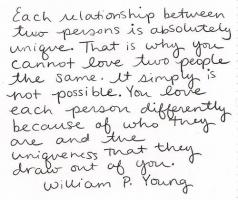 Each relationship between
two persons is absolutely
unique. That is why you
cannot love two people
the same. It simply is
not possible. You love
each person differently
because of who they
are and the
uniqueness that they
draw out of you.
William P. Young